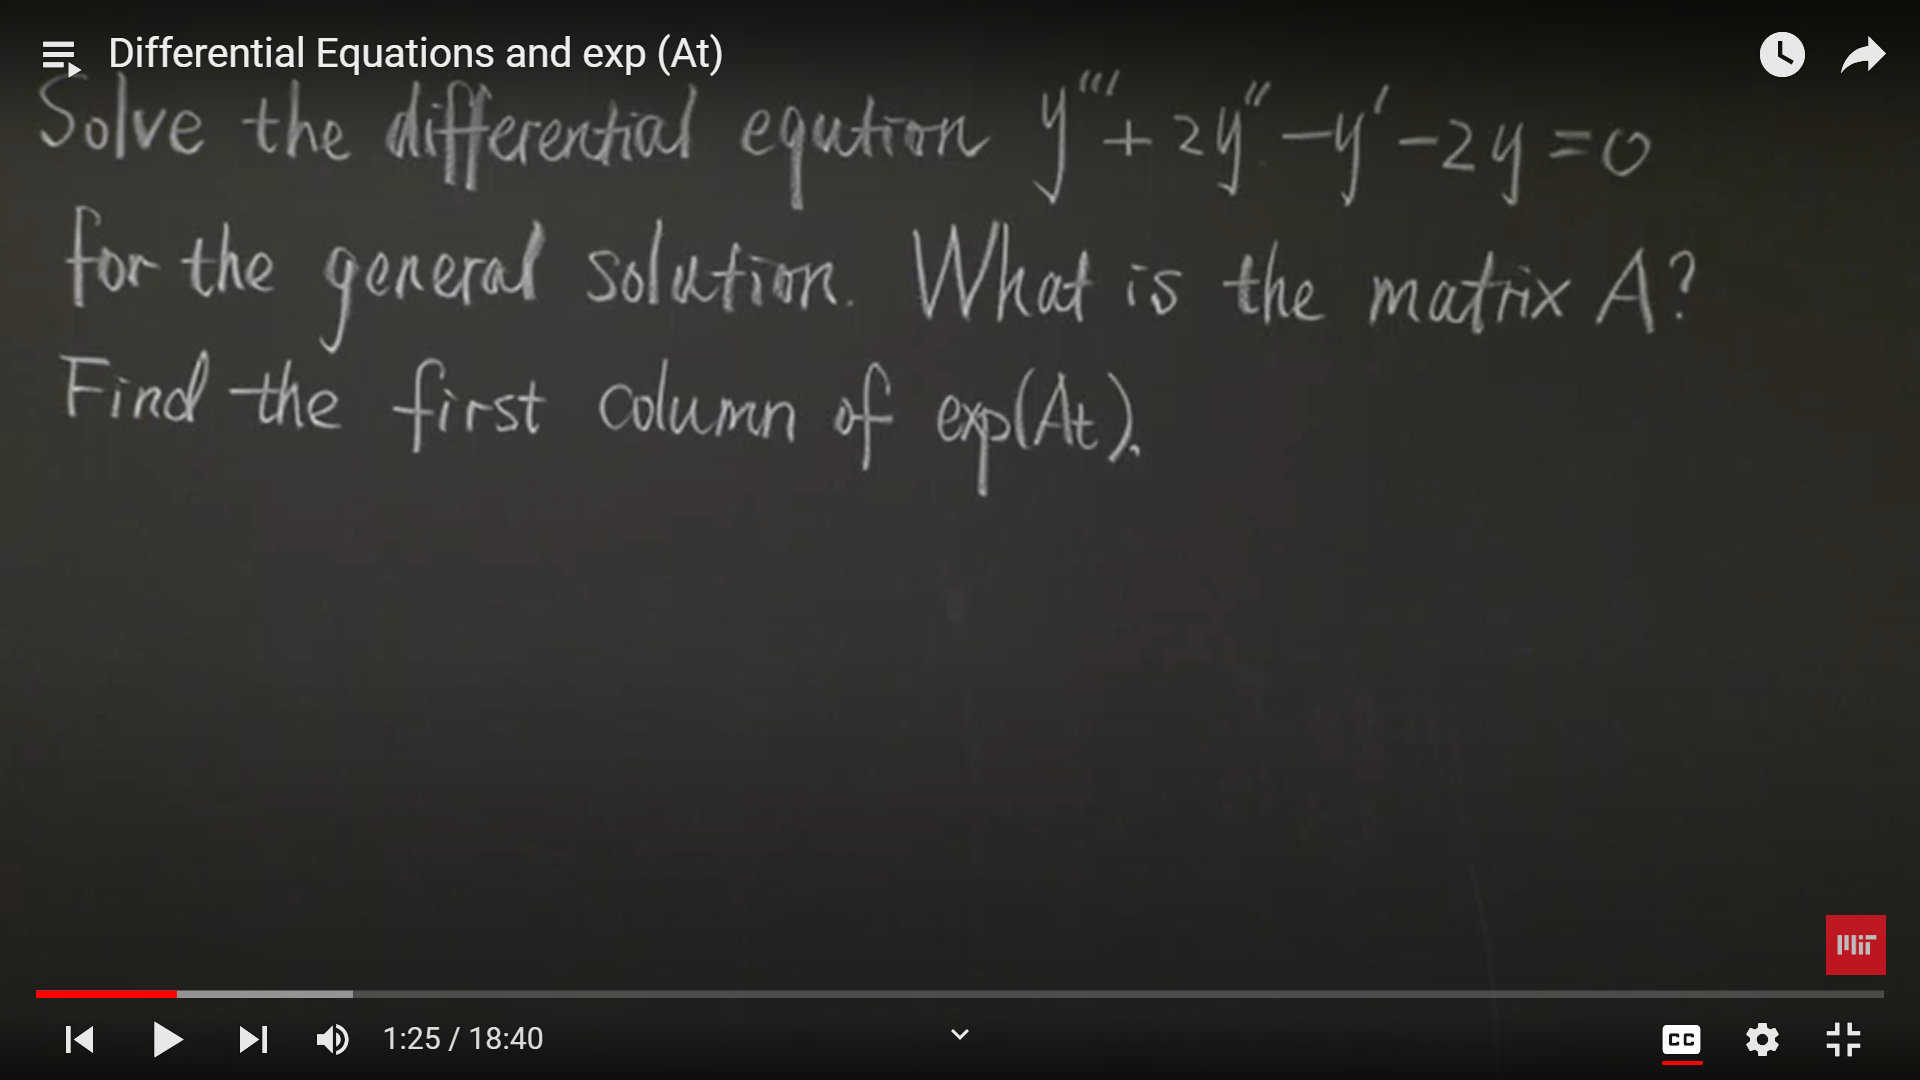 Differential Equations and exp (At)
Solve the differential eqution y''' + 2y'' - y' - 2y = 0
for the general solution. What is the matrix A?
Find the first column of exp(At).
MIT
1:25 / 18:40
CC